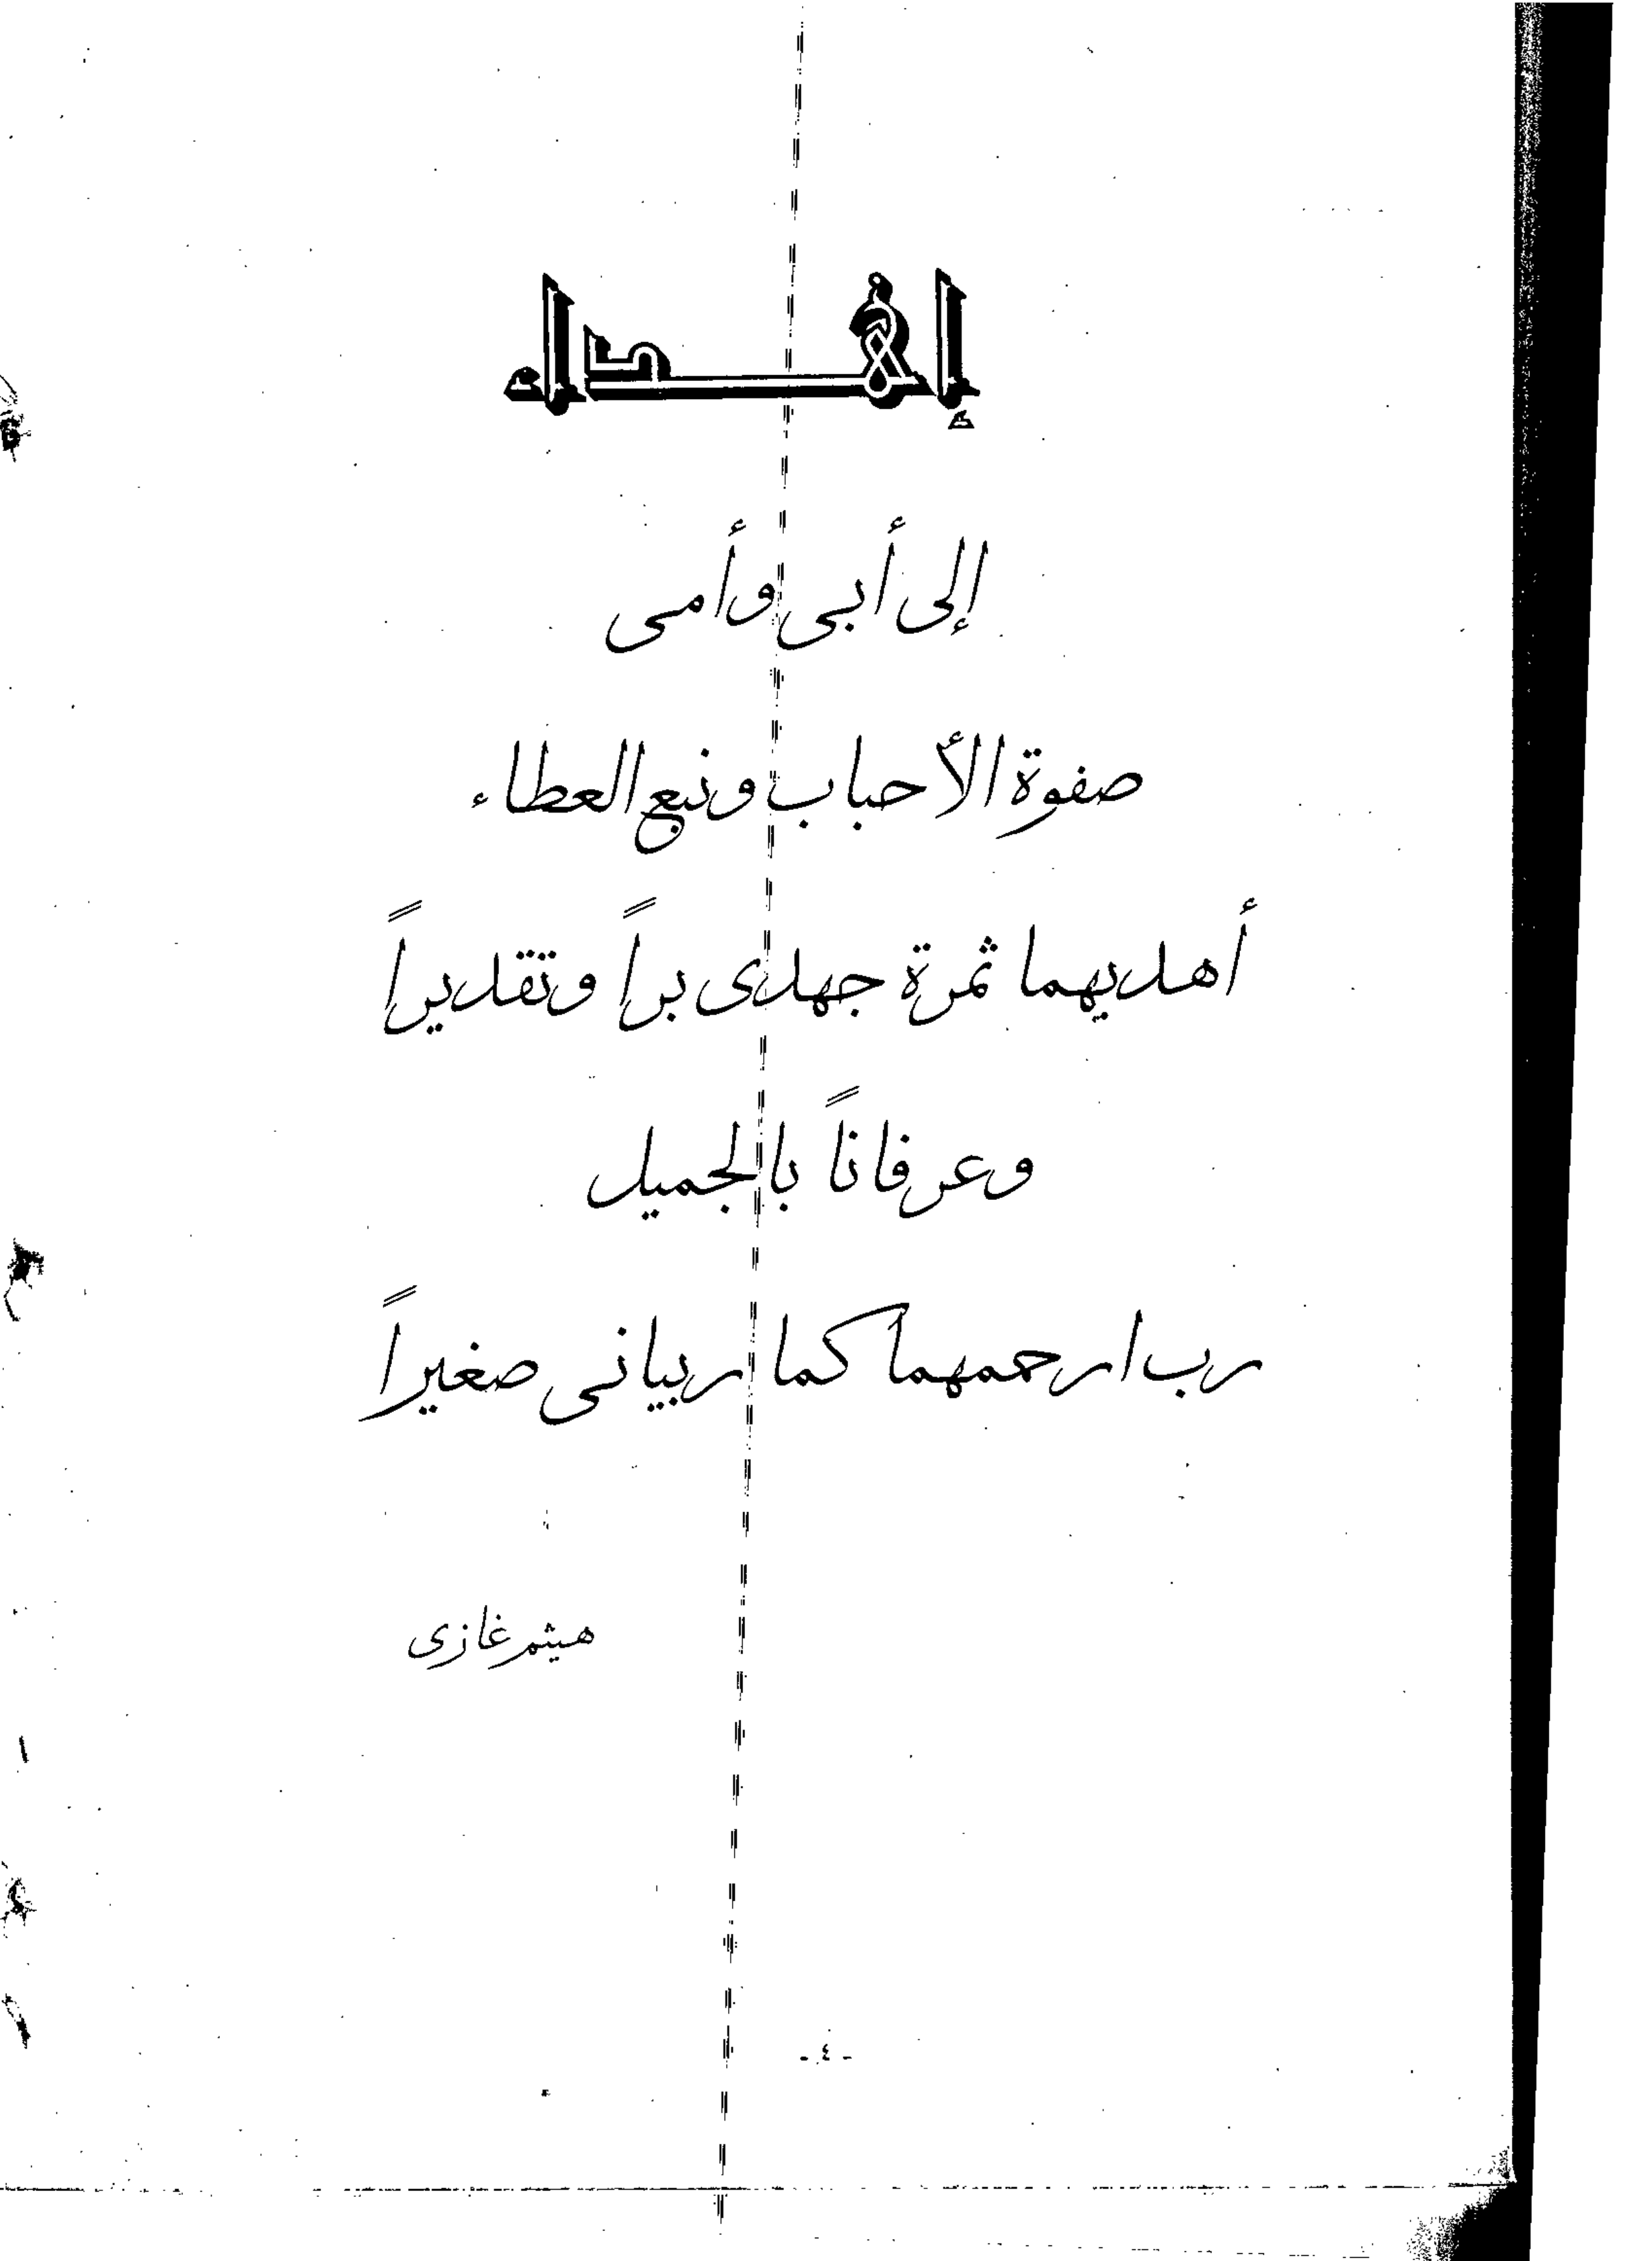 إهداء
إلى أبى وأمى
صفوة الأحباب ونبع العطاء
أهديهما ثمرة جهدى براً وتقديراً
وعرفاناً بالجميل
رب ارحمهما كما ربيانى صغيراً
هيثم غازى
- ٤ -